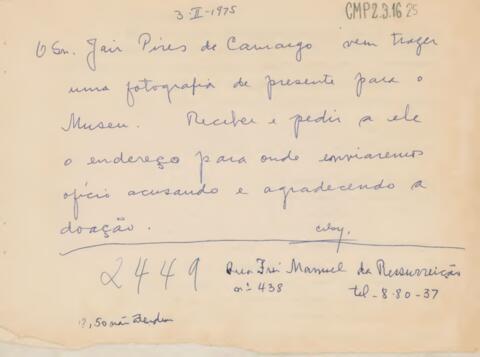 3-II-1975
CMP2.3.16 25
O Sn. Jair Pires de Camargo vem trazer
uma fotografia de presente para o
Museu. Receber e pedir a ele
o endereço para onde enviaremos
ofício acusando e agradecendo a
doação.
2449
Rua Frei Manuel da Ressurreição
nº 438 tel-8-80-37